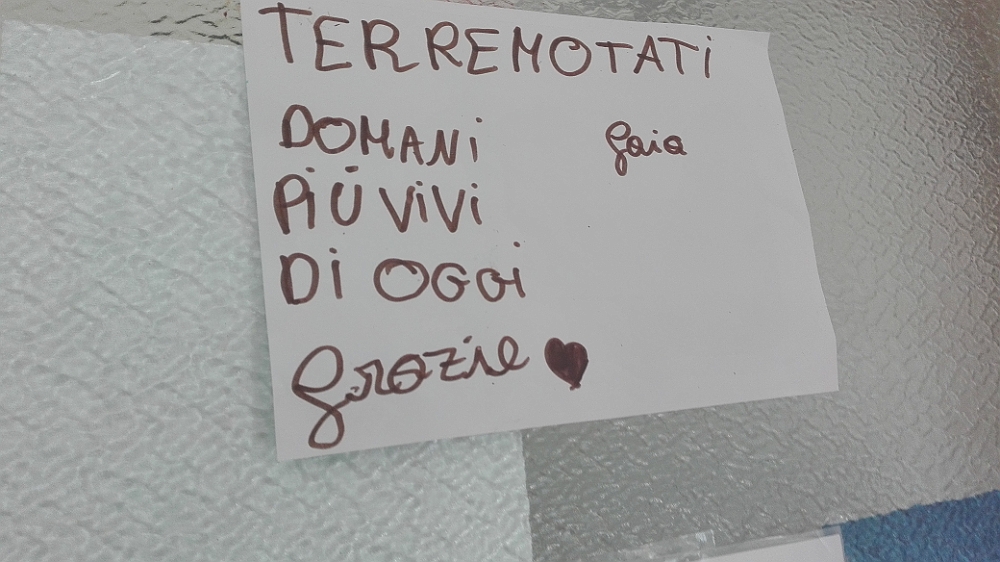 TERREMOTATI
DOMANI
PIÙ VIVI
DI OGGI
Gaia
Grazie